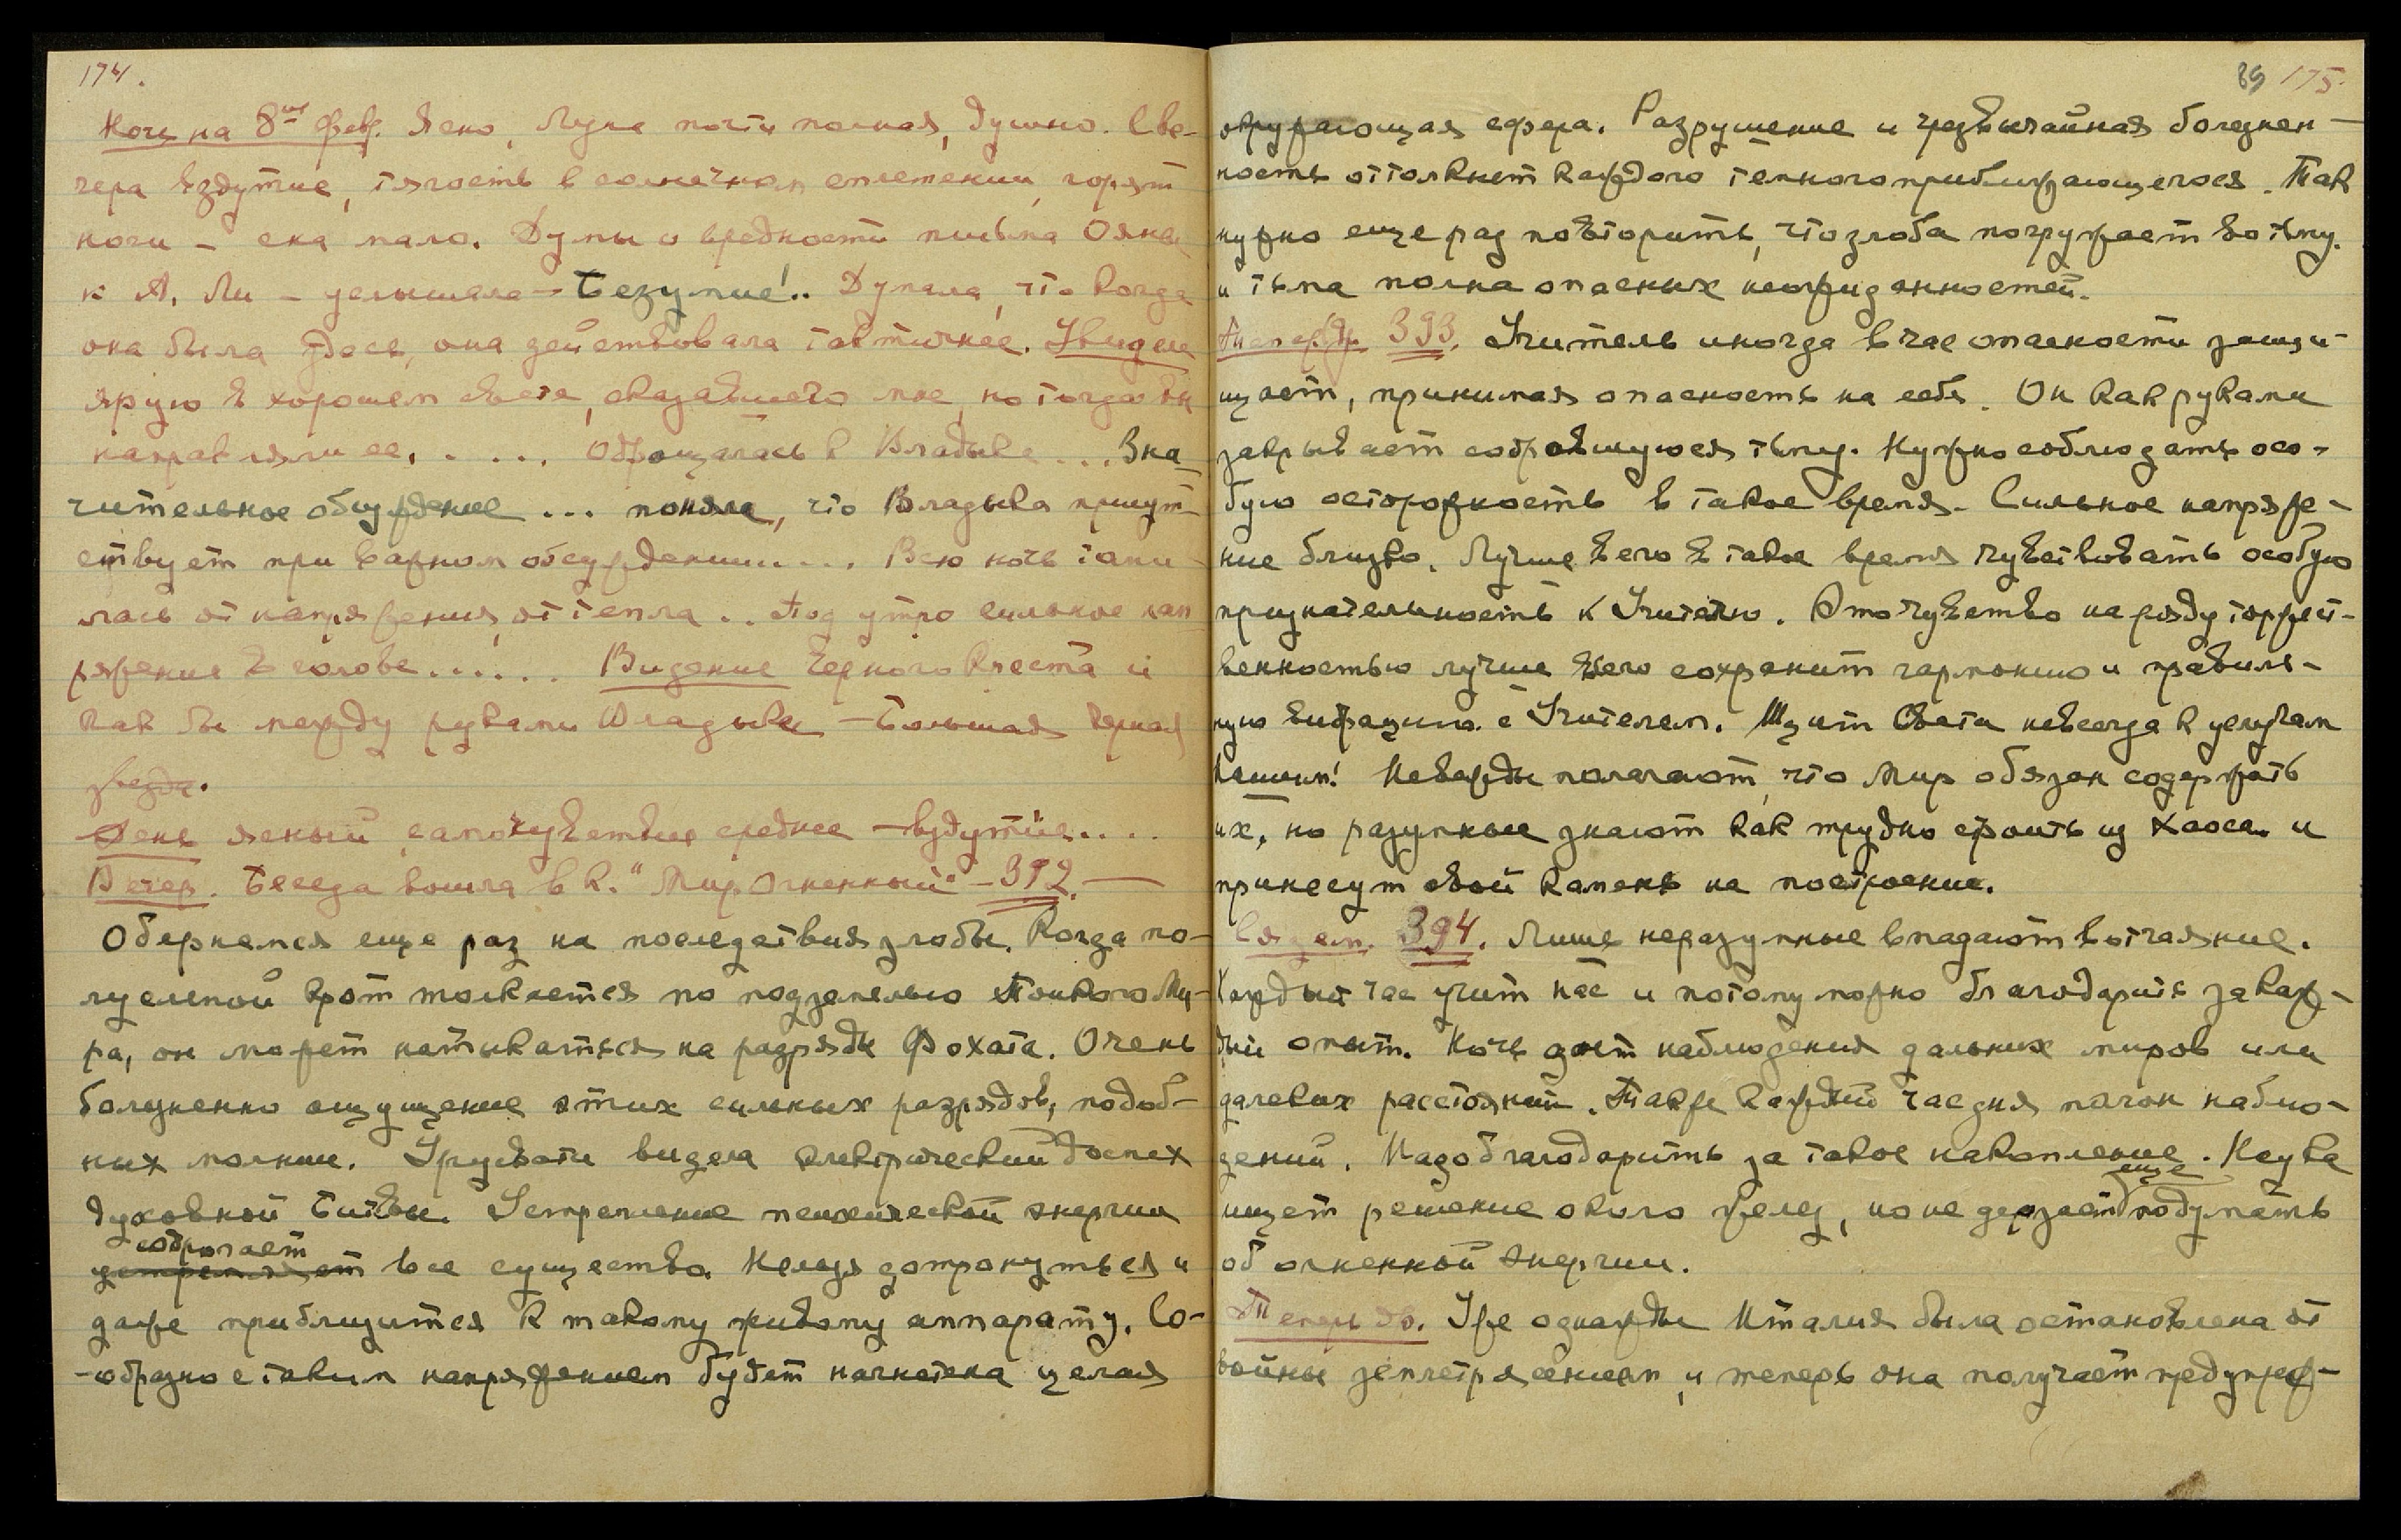 174.
Ночь на 8ое фев. Ясно, Луна почти полная, душно. С ве-
чера вздутие, тягость в солнечном сплетении, горят
ноги – сна мало. Думы о вредности письма Ояны
к А. Ли – услышала – Безумие!.. Думала, что когда
она была здесь, она действовала тактичнее. Увидела
ярую в хорошем свете, сказавшего мне, но тогда вы
направляли ее. . . . . Обращалась к Владыке... Зна-
чительное обсуждение ... поняла, что Владыка присут-
ствует при важном обсуждении.... Всю ночь томи-
лась от напряжения, от тепла .. Под утро сильное нап
ряжение в голове...... Видение черного креста и
как бы между руками Владыки – Большая черная
звезда.
День ясный, самочувствие среднее – вздутие....
Вечер. Беседа вошла в к. "Мир Огненный" – 392. —
Обернемся еще раз на последствия злобы. Когда по-
луслепой крот толкается по подземелью Тонкого Ми-
ра, он может натыкаться на разряды Фохата. Очень
болезненно ощущение этих сильных разрядов, подоб-
ных молнии. Урусвати видела электрический доспех
духовной Битвы. Устремление психической энергии
сопрягает
устремляет все существо. Нельзя дотронуться и
даже приблизится к такому живому аппарату. Со-
-образно с таким напряжением будет нагнетена целая
89 175.
окружающая сфера. Разрушение и чрезвычайная болезнен-
ность оттолкнет каждого темного приближающегося. Так
нужно еще раз повторить, что злоба погружает во тьму.
и тьма полна опасных неожиданностей.
393. Учитель иногда в час опасности защи-
щает, принимая опасность на себя. Он как руками
закрывает собравшуюся тьму. Нужно соблюдать осо-
бую осторожность в такое время. Сильное напряже-
ние близко. Лучше всего в такое время чувствовать особую
признательность к Учителю. Это чувство наряду торжест-
венностью лучше всего сохранит гармонию и правиль-
ную вибрацию с Учителем. Щит Света не всегда к услугам
нашим! Невежды полагают, что Мир обязан содержать
их, но разумные знают как трудно строить из Хаоса и
принесут свой камень на построение.
394. Лишь неразумные впадают в отчаяние.
Каждый час учит нас и потому можно благодарить за каж-
дый опыт. Ночь дает наблюдения дальних миров или
далеких расстояний. Также каждый час дня полон наблю-
дений. Надо благодарить за такое накопление. Наука
еще
ищет решение около желез, но не дерзает подумать
об огненной энергии.
Теперь др. Уже однажды Италия была остановлена от
войны землетрясением, и теперь она получает предупреж-